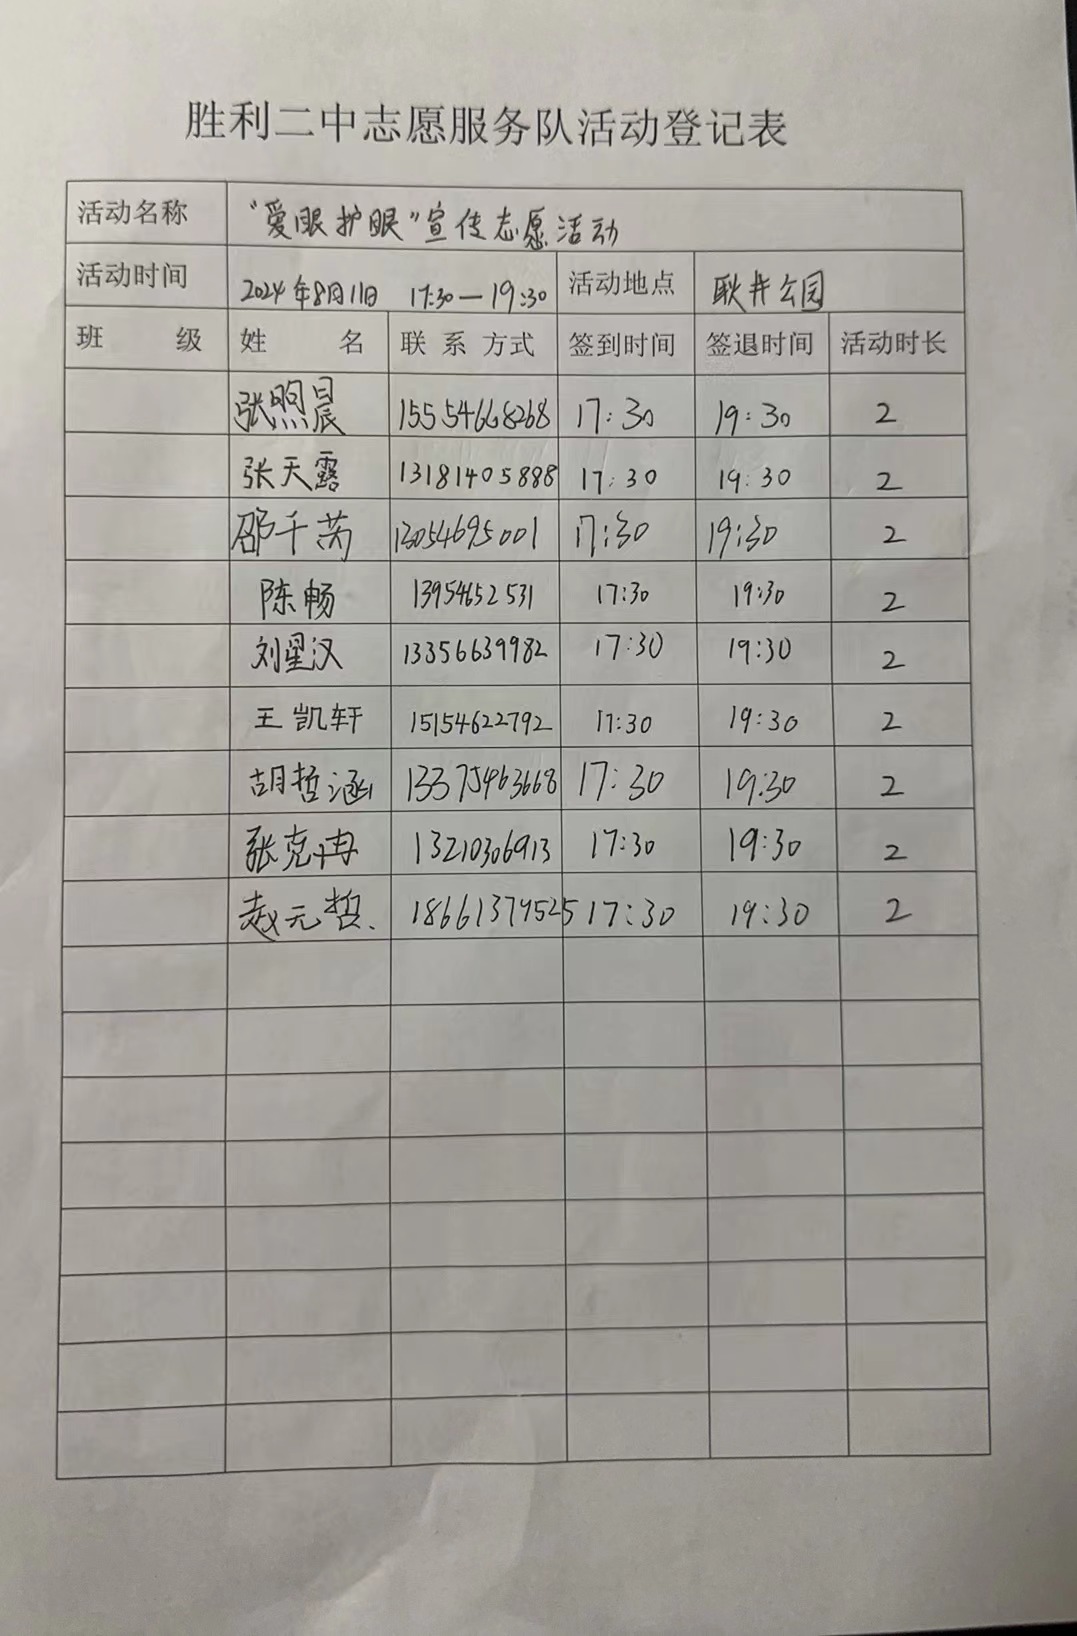 胜利二中志愿服务队活动登记表
活动名称 “爱眼护眼”宣传志愿活动
活动时间 2024年8月11日 17:30—19:30 活动地点 耿井公园
班 级 姓 名 联 系 方式 签到时间 签退时间 活动时长
张煦晨 15554668268 17:30 19:30 2
张天露 13181405888 17:30 19:30 2
邵千芮 13054695001 17:30 19:30 2
陈畅 13954652531 17:30 19:30 2
刘星汉 13356639982 17:30 19:30 2
王凯轩 15154622792 17:30 19:30 2
胡哲涵 13375463668 17:30 19:30 2
张克冉 13210306913 17:30 19:30 2
赵元哲 18661379525 17:30 19:30 2